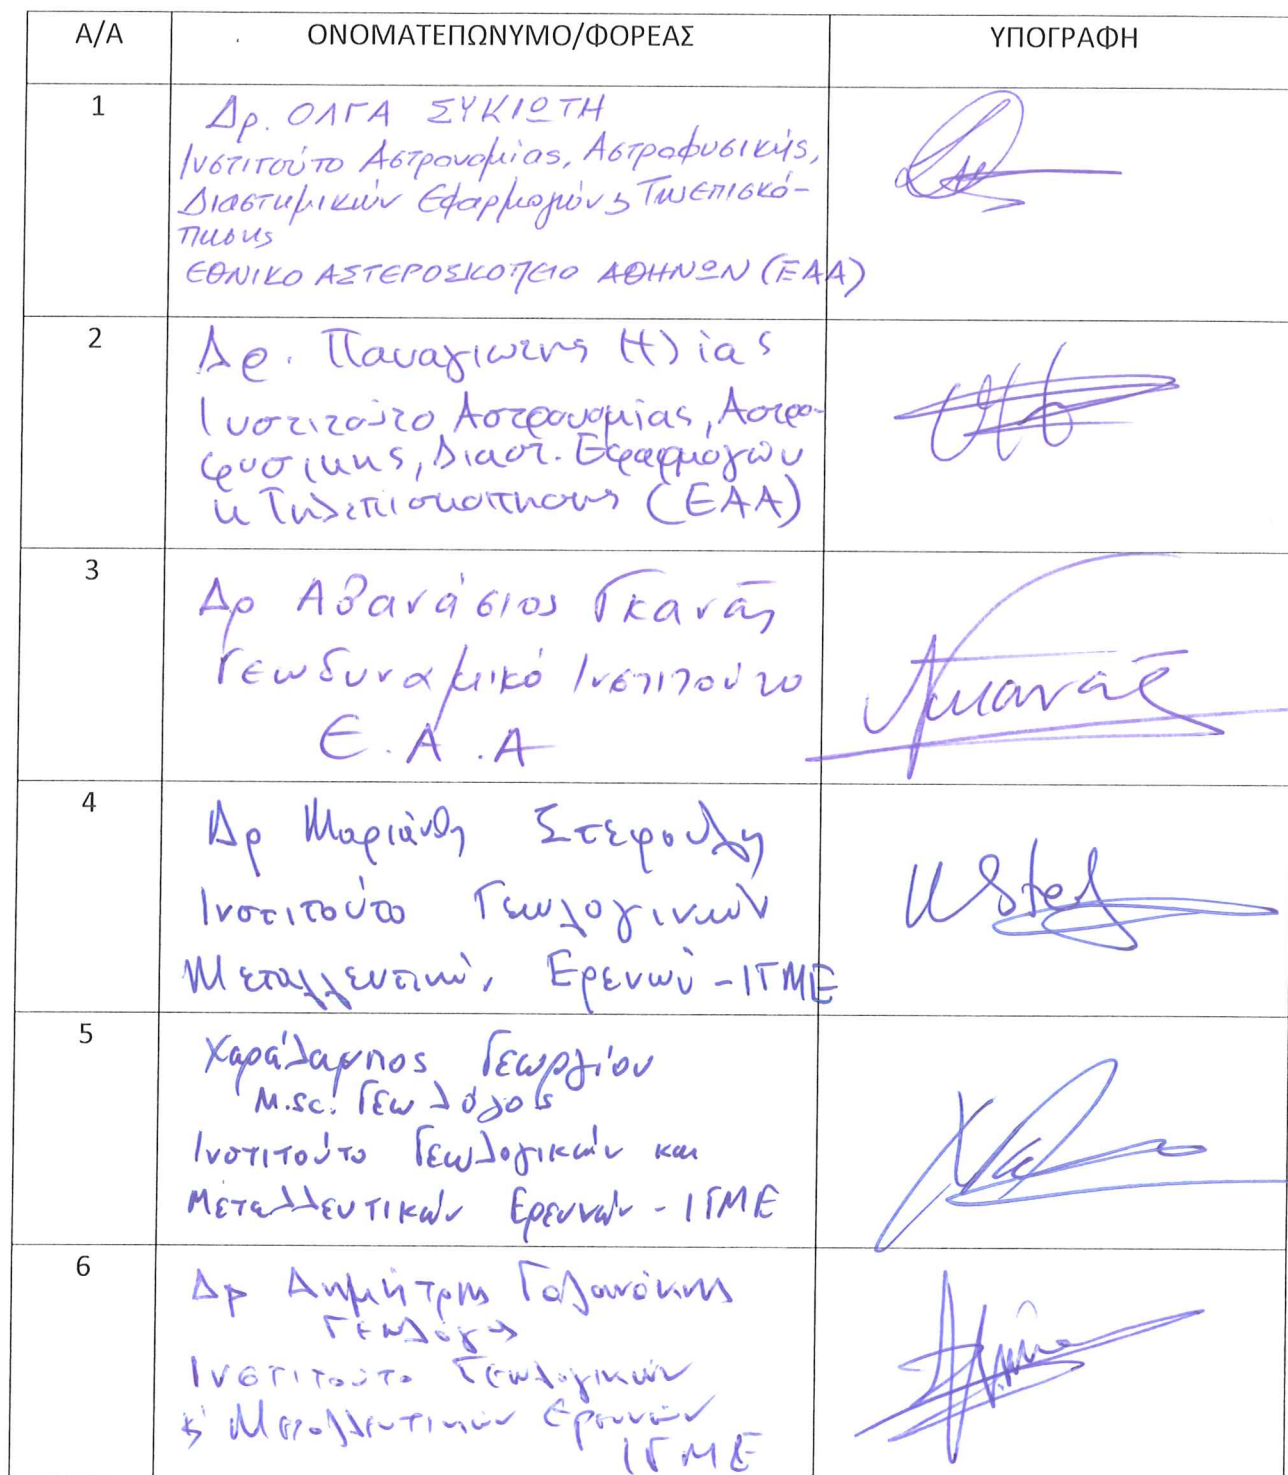 Α/Α ΟΝΟΜΑΤΕΠΩΝΥΜΟ/ΦΟΡΕΑΣ ΥΠΟΓΡΑΦΗ
1
Δρ. ΟΛΓΑ ΣΥΚΙΩΤΗ
Ινστιτούτο Αστρονομίας, Αστροφυσικής,
Διαστημικών Εφαρμογών ϗ Τηλεπισκό-
πησης
ΕΘΝΙΚΟ ΑΣΤΕΡΟΣΚΟΠΕΙΟ ΑΘΗΝΩΝ (ΕΑΑ)
2
Δρ. Παναγιωτης Ηλίας
Ινστιτούτο Αστρονομίας, Αστρο-
φυσικης, Διαστ. Εφαρμογων
κ Τηλεπισκοπησης (ΕΑΑ)
3
Δρ Αθανάσιος Γκανάς
Γεωδυναμικό Ινστιτούτο
Ε.Α.Α
Γκανάς
4
Δρ Μαριάνθη Στεφουλη
Ινστιτούτο Γεωλογικών
Μεταλλευτικών, Ερευνών - ΙΓΜΕ
5
Χαράλαμπος Γεωργίου
M.sc. Γεωλόγος
Ινστιτούτο Γεωλογικών και
Μεταλλευτικών Ερευνών - ΙΓΜΕ
6
Δρ Δημήτρης Γαλανάκης
Γεωλόγος
Ινστιτούτο Γεωλογικών
ϗ Μεταλλευτικών Ερευνών
ΙΓΜΕ